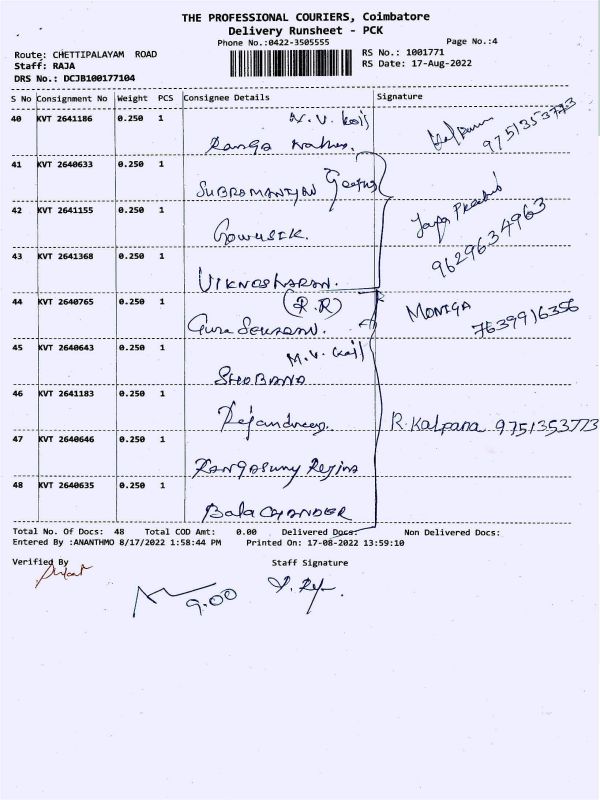 THE PROFESSIONAL COURIERS, Coimbatore
Delivery Runsheet - PCK
Phone No.:0422-3505555
Page No.:4
Route: CHETTIPALAYAM ROAD
Staff: RAJA
DRS No.: DCJB100177104
RS No.: 1001771
RS Date: 17-Aug-2022
S No Consignment No Weight PCS Consignee Details Signature
40 KVT 2641186 0.250 1
Kalpana
9751353773
41 KVT 2640633 0.250 1 SUBROMANIYAN Geetha
42 KVT 2641155 0.250 1 Gowusik.
9629634963
43 KVT 2641368 0.250 1 VIKNESHARAN.
(R.R)
44 KVT 2640765 0.250 1 Guna SEKARAN. MONIGA 7639916356
45 KVT 2640643 0.250 1 SHOBANA
46 KVT 2641183 0.250 1 R. Kalpana 9751353773
47 KVT 2640646 0.250 1
48 KVT 2640635 0.250 1 Bala CHANDER
Total No. Of Docs: 48 Total COD Amt: 0.00 Delivered Docs: Non Delivered Docs:
Entered By :ANANTHMO 8/17/2022 1:58:44 PM Printed On: 17-08-2022 13:59:10
Verified By Staff Signature
9.00